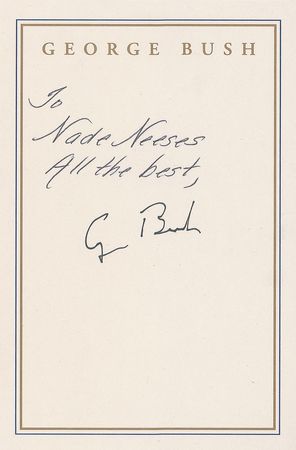 GEORGE BUSH
To
Nade Neeses
All the best,
G Bush